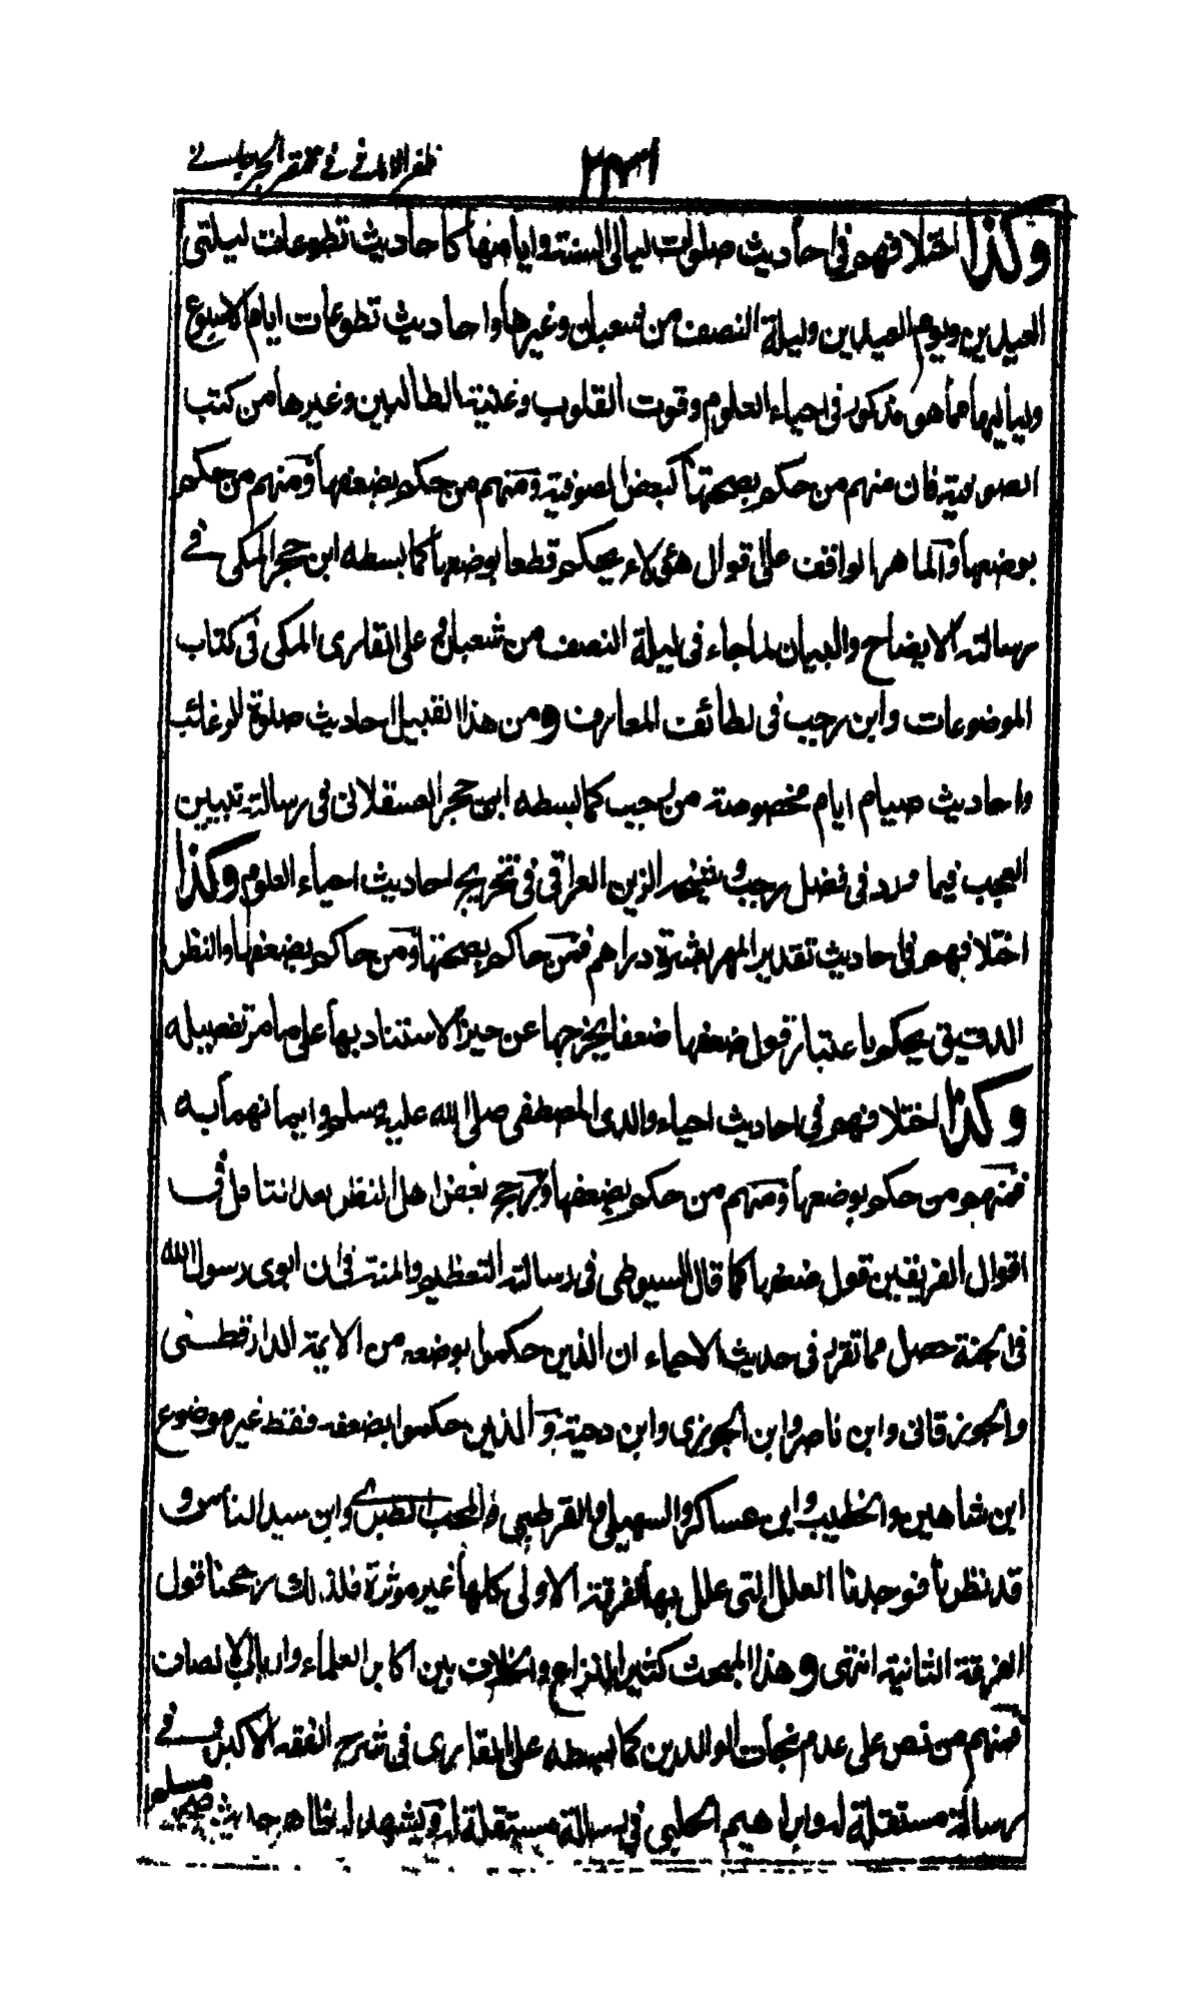 ظفر الامانی فی مختصر الجرجانی
۲۳۱
وكذا اختلافهم فی احاديث صلوات ليالی السنة وايامها كاحاديث تطوعات ليلتی
العيدين ويوم العيدين وليلة النصف من شعبان وغيرها واحاديث تطوعات ايام الاسبوع
ولياليها مما هو مذكور فی احياء العلوم وقوت القلوب وغنية الطالبين وغيرها من كتب
الصوفية فان منهم من حكم بصحتها كبعض الصوفية ومنهم من حكم بضعفها ومنهم من حكم
بوضعها والماهر الواقف علی اقوال هؤلاء يحكم قطعا بوضعها كما بسطه ابن حجر المكی فی
رسالته الايضاح والبيان لما جاء فی ليلة النصف من شعبان وعلی القاری المكی فی كتاب
الموضوعات وابن رجب فی لطائف المعارف ومن هذا القبيل احاديث صلوة الرغائب
واحاديث صيام ايام مخصوصة من رجب كما بسطه ابن حجر العسقلانی فی رسالته تبيين
العجب فيما ورد فی فضل رجب وشيخه الزين العراقی فی تخريج احاديث احياء العلوم وكذا
اختلافهم فی احاديث تقدير المهر بعشرة دراهم فمن حاكم بصحتها ومن حاكم بضعفها والنظر
الدقيق يحكم باعتبار قول ضعفها ضعفا يخرجها عن حيز الاستناد بها علی ما مر تفصيله
وكذا اختلافهم فی احاديث احياء والدی المصطفی صلی الله عليه وسلم وايمانهما به
فمنهم من حكم بوضعها ومنهم من حكم بضعفها ويرجح بعض اهل النظر بعد التامل فی
اقوال الفريقين قول ضعفها كما قال السيوطی فی رسالته التعظيم والمنة فی ان ابوی رسول الله
فی الجنة حصل مما تقرر فی حديث الاحياء ان الذين حكموا بوضعه من الايمة الدارقطنی
والجوزقانی وابن ناصر وابن الجوزی وابن دحية والذين حكموا بضعفه فقط غير موضوع
ابن شاهين والخطيب وابن عساكر والسهيلی والقرطبی والمحب الطبری وابن سيد الناس و
قد نظرنا فوجدنا العلل التی علل بها الفرقة الاولی كلها غير موثرة فلذلك رجحنا قول
الفرقة الثانية انتهی وهذا المبحث كثير النزاع والخلاف بين اكابر العلماء وارباب الانصاف
فمنهم من نص علی عدم نجات الوالدين كما بسطه علی القاری فی شرح الفقه الاكبر وفی
رسالة مستقلة له وابراهيم الحلبی فی رسالة مستقلة له ويشهد له ظاهر حديث صحيح مسلم